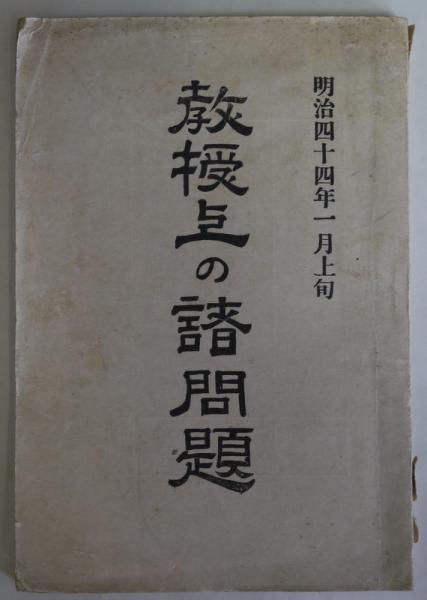 明治四十四年一月上旬
教授上の諸問題